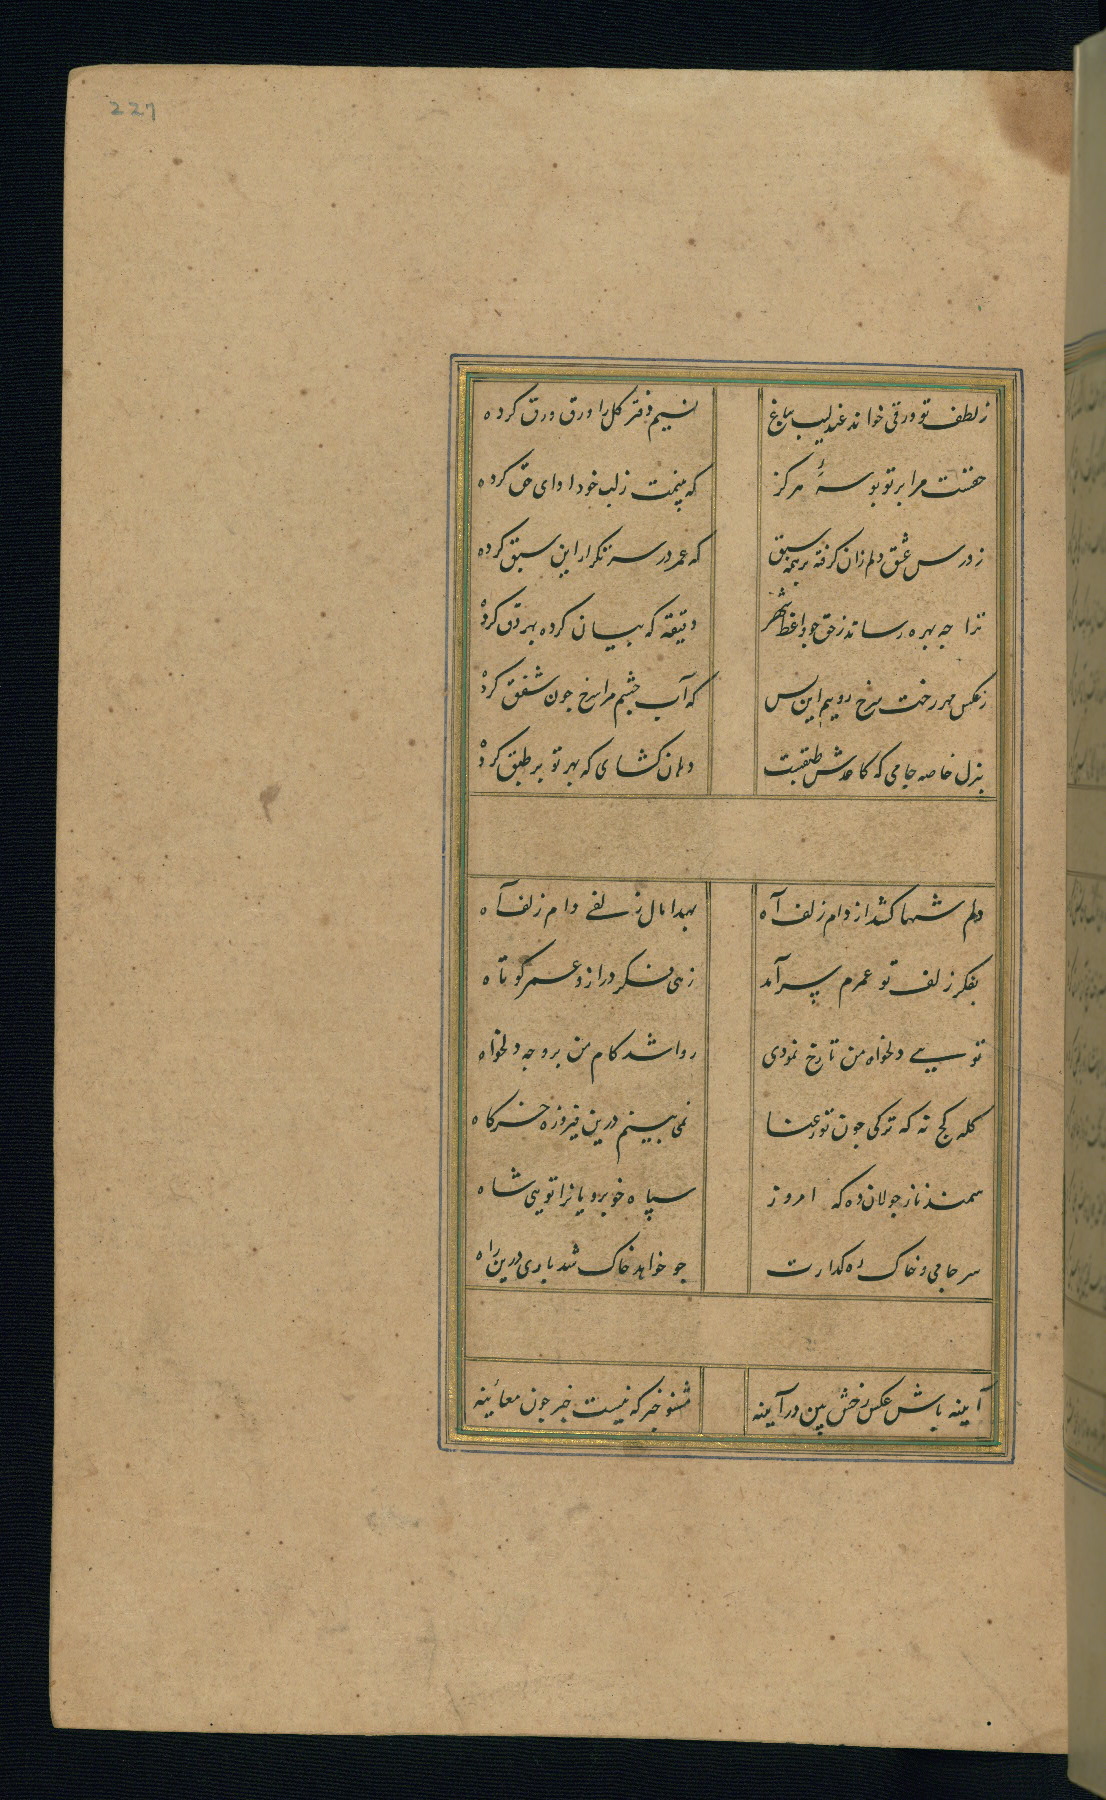 227
ز لطف تو ورقی خواند عندلیب بباغ
نسیم دفتر کل را ورق ورق کرده
حقست مرا بر تو بوسهٔ هرکز
که بینمت ز لب خود ادای حق کرده
ز درس عشق دلم زان کرفته بر همه سبق
که عمر در سر تکرار این سبق کرده
ترا چه بهره رساند ز حق جو واعظ شهر
دقیقه که بیان کرده بهر دق کرده
ز عکس مهر رخت سرخ رویم این بس
که آب چشم مرا سرخ جون شفق کرده
بذل خاصه جامی که کاغدش طبقیست
دهان کشای که بهر تو بر طبق کرده
دلم شبها کشد از دام زلف آه
بهدا مال زلفے دام زلف آه
بفکر زلف تو عمرم بسر آمد
زهی فکر دراز و عمر کوتاه
تویے دلخواه من تا رخ نمودی
روا شد کام من بر وجه دلخواه
کله کج نه که ترکی جون تو رعنا
نمی بینم درین فیروزه خرکاه
سمند ناز جولان ده که امروز
سپاه خوبرویانرا تویی شاه
سر جامی و خاک ره کذارت
جو خواهد خاک شد باری درین راه
آیینه باش عکس رخش بین در آینه
مشنو خبر که نیست خبر جون معائینه